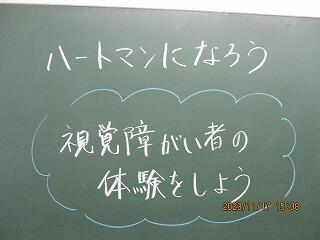 ハートマンになろう
視覚障がい者の
体験をしよう
2023/11/17 15:08